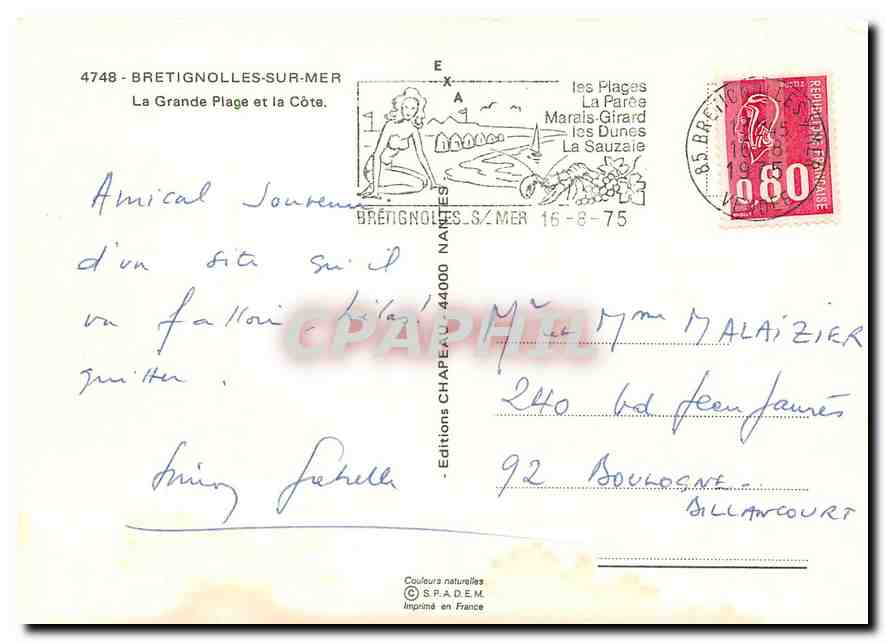 4748 - BRETIGNOLLES-SUR-MER
La Grande Plage et la Côte.
E
X
A
les Plages
La Parée
Marais-Girard
les Dunes
La Sauzaie
BRÉTIGNOLLES_S/MER 16-8-75
85 BRETIGNOLLES
16-8
1975
VENDÉE
REPUBLIQUE FRANÇAISE
0,80
Amical Souvenir
d'un site qu'il
va falloir, hélas!
quitter.
- Editions CHAPEAU - 44000 NANTES
CPAPHIL
Mr et Mme MALAIZIER
240 bd Jean Jaurès
92 BOULOGNE-
BILLANCOURT
Couleurs naturelles
© S.P.A.D.E.M.
Imprimé en France